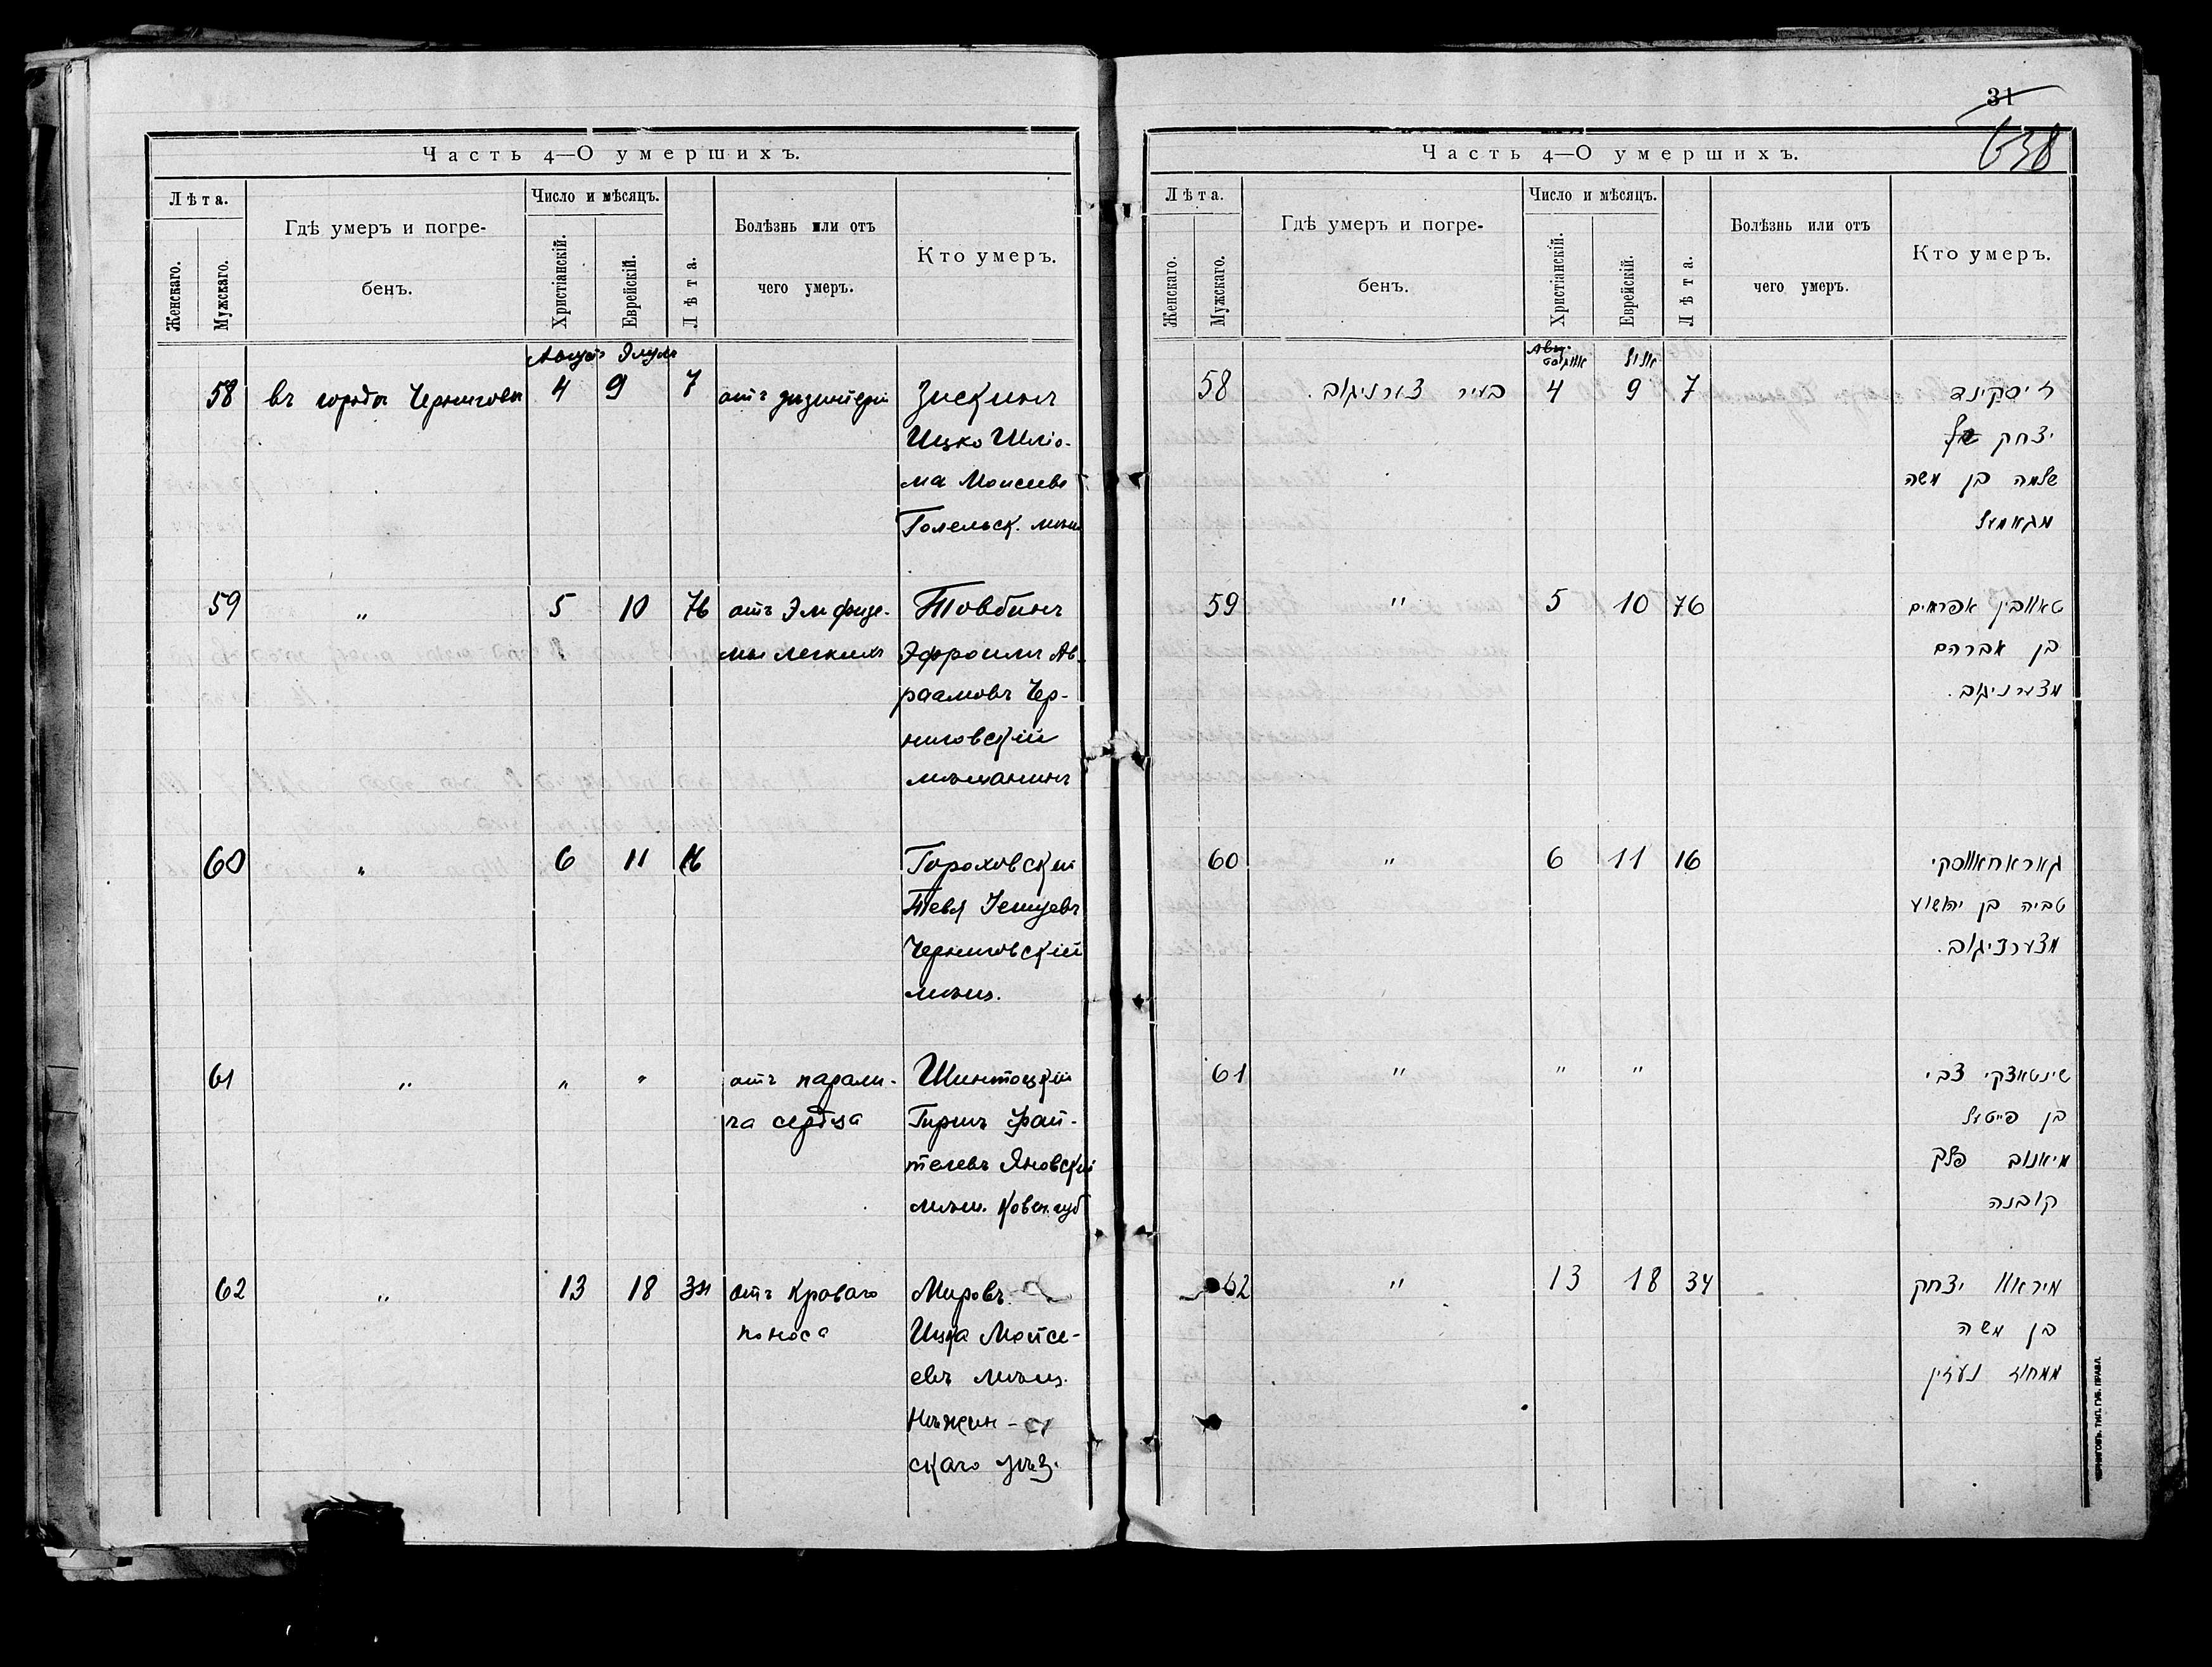 Часть 4—О умершихъ.
Лѣта.
Женскаго.
Мужскаго.
Гдѣ умеръ и погре-
бенъ.
Число и мѣсяцъ.
Христіанскій.
Еврейскій.
Лѣта.
Болѣзнь или отъ
чего умеръ.
Кто умеръ.
Августъ Элулъ
58 въ городѣ Черниговѣ 4 9 7 отъ дизинтеріи Зискинъ
Ицко Шліо-
ма Моисеевъ
59 " 5 10 76 отъ Эмфизе- Товбинъ
мы легкихъ Эфроимъ Ав-
раамовъ Чер-
ниговскій
мѣщанинъ
60 " 6 11 16 Гороховскій
Тевя
Черниговскій
мѣщ.
61 " " " отъ парали- Шинтоцкій
ча сердца Гиршъ Фай-
телевъ Яновскій
мѣщ. Ковен. губ
62 " 13 18 34 отъ Кроваго Мировъ
поноса Ицка Мойсе-
евъ мѣщ.
Нѣжин-
скаго уѣз.
31
638
Часть 4—О умершихъ.
Лѣта.
Женскаго.
Мужскаго.
Гдѣ умеръ и погре-
бенъ.
Число и мѣсяцъ.
Христіанскій.
Еврейскій.
Лѣта.
Болѣзнь или отъ
чего умеръ.
Кто умеръ.
אויגוסט אלול
58 בעיר צערניגוב 4 9 7 זיסקינד
יצחק
שלמה בן משה
מגאמעל
59 " 5 10 76 טאווbין אפרים
בן אברהם
מצערניגוב.
60 " 6 11 16 גאראחאווסקי
טביה בן יהושוע
מצערניגוב.
61 " " " שינטאצקי צבי
בן פייטעל
מיאנוב פלך
קובנה
62 " 13 18 34 מיראוו יצחק
בן משה
ממחוז נעזין
ЧЕРНИГОВЪ. ТИП. ГУБ. ПРАВЛ.